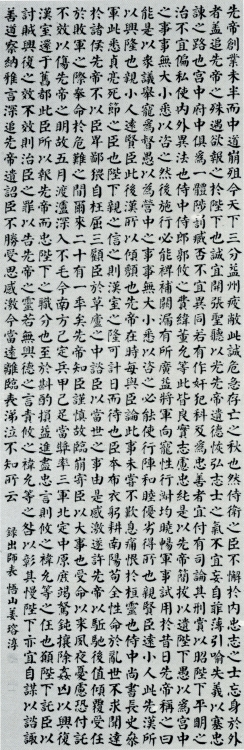 先帝創業未半而中道崩殂今天下三分益州疲敝此誠危急存亡之秋也然侍衛之臣不懈於內忠志之士忘身於外
者蓋追先帝之殊遇欲報之於陛下也誠宜開張聖聽以光先帝遺德恢弘志士之氣不宜妄自菲薄引喻失義以塞忠
諫之路也宮中府中俱為一體陟罰臧否不宜異同若有作奸犯科及為忠善者宜付有司論其刑賞以昭陛下平明之
治不宜偏私使內外異法也侍中侍郎郭攸之費禕董允等此皆良實志慮忠純是以先帝簡拔以遺陛下愚以為宮中
之事事無大小悉以咨之然後施行必能裨補闕漏有所廣益將軍向寵性行淑均曉暢軍事試用於昔日先帝稱之曰
能是以眾議舉寵為督愚以為營中之事事無大小悉以咨之必能使行陣和睦優劣得所也親賢臣遠小人此先漢所
以興隆也親小人遠賢臣此後漢所以傾頹也先帝在時每與臣論此事未嘗不歎息痛恨於桓靈也侍中尚書長史參
軍此悉貞亮死節之臣也陛下親之信之則漢室之隆可計日而待也臣本布衣躬耕南陽苟全性命於亂世不求聞達
於諸侯先帝不以臣卑鄙猥自枉屈三顧臣於草廬之中諮臣以當世之事由是感激遂許先帝以馳驅後值傾覆受任
於敗軍之際奉命於危難之間爾來二十有一年矣先帝知臣謹慎故臨崩寄臣以大事也受命以來夙夜憂慮恐付託
不效以傷先帝之明故五月渡瀘深入不毛今南方已定兵甲已足當獎率三軍北定中原庶竭駑鈍攘除姦凶以興復
漢室還于舊都此臣所以報先帝而忠陛下之職分也至於斟酌損益進盡忠言則攸之禕允等之任也願陛下託臣以
討賊興復之效不效則治臣之罪以告先帝之靈若無興德之言責攸之禕允等之咎以彰其慢陛下亦宜自謀以諮諏
善道察納雅言深追先帝遺詔臣不勝受恩感激今當遠離臨表涕泣不知所云
錄出師表 悟山姜瑢淳